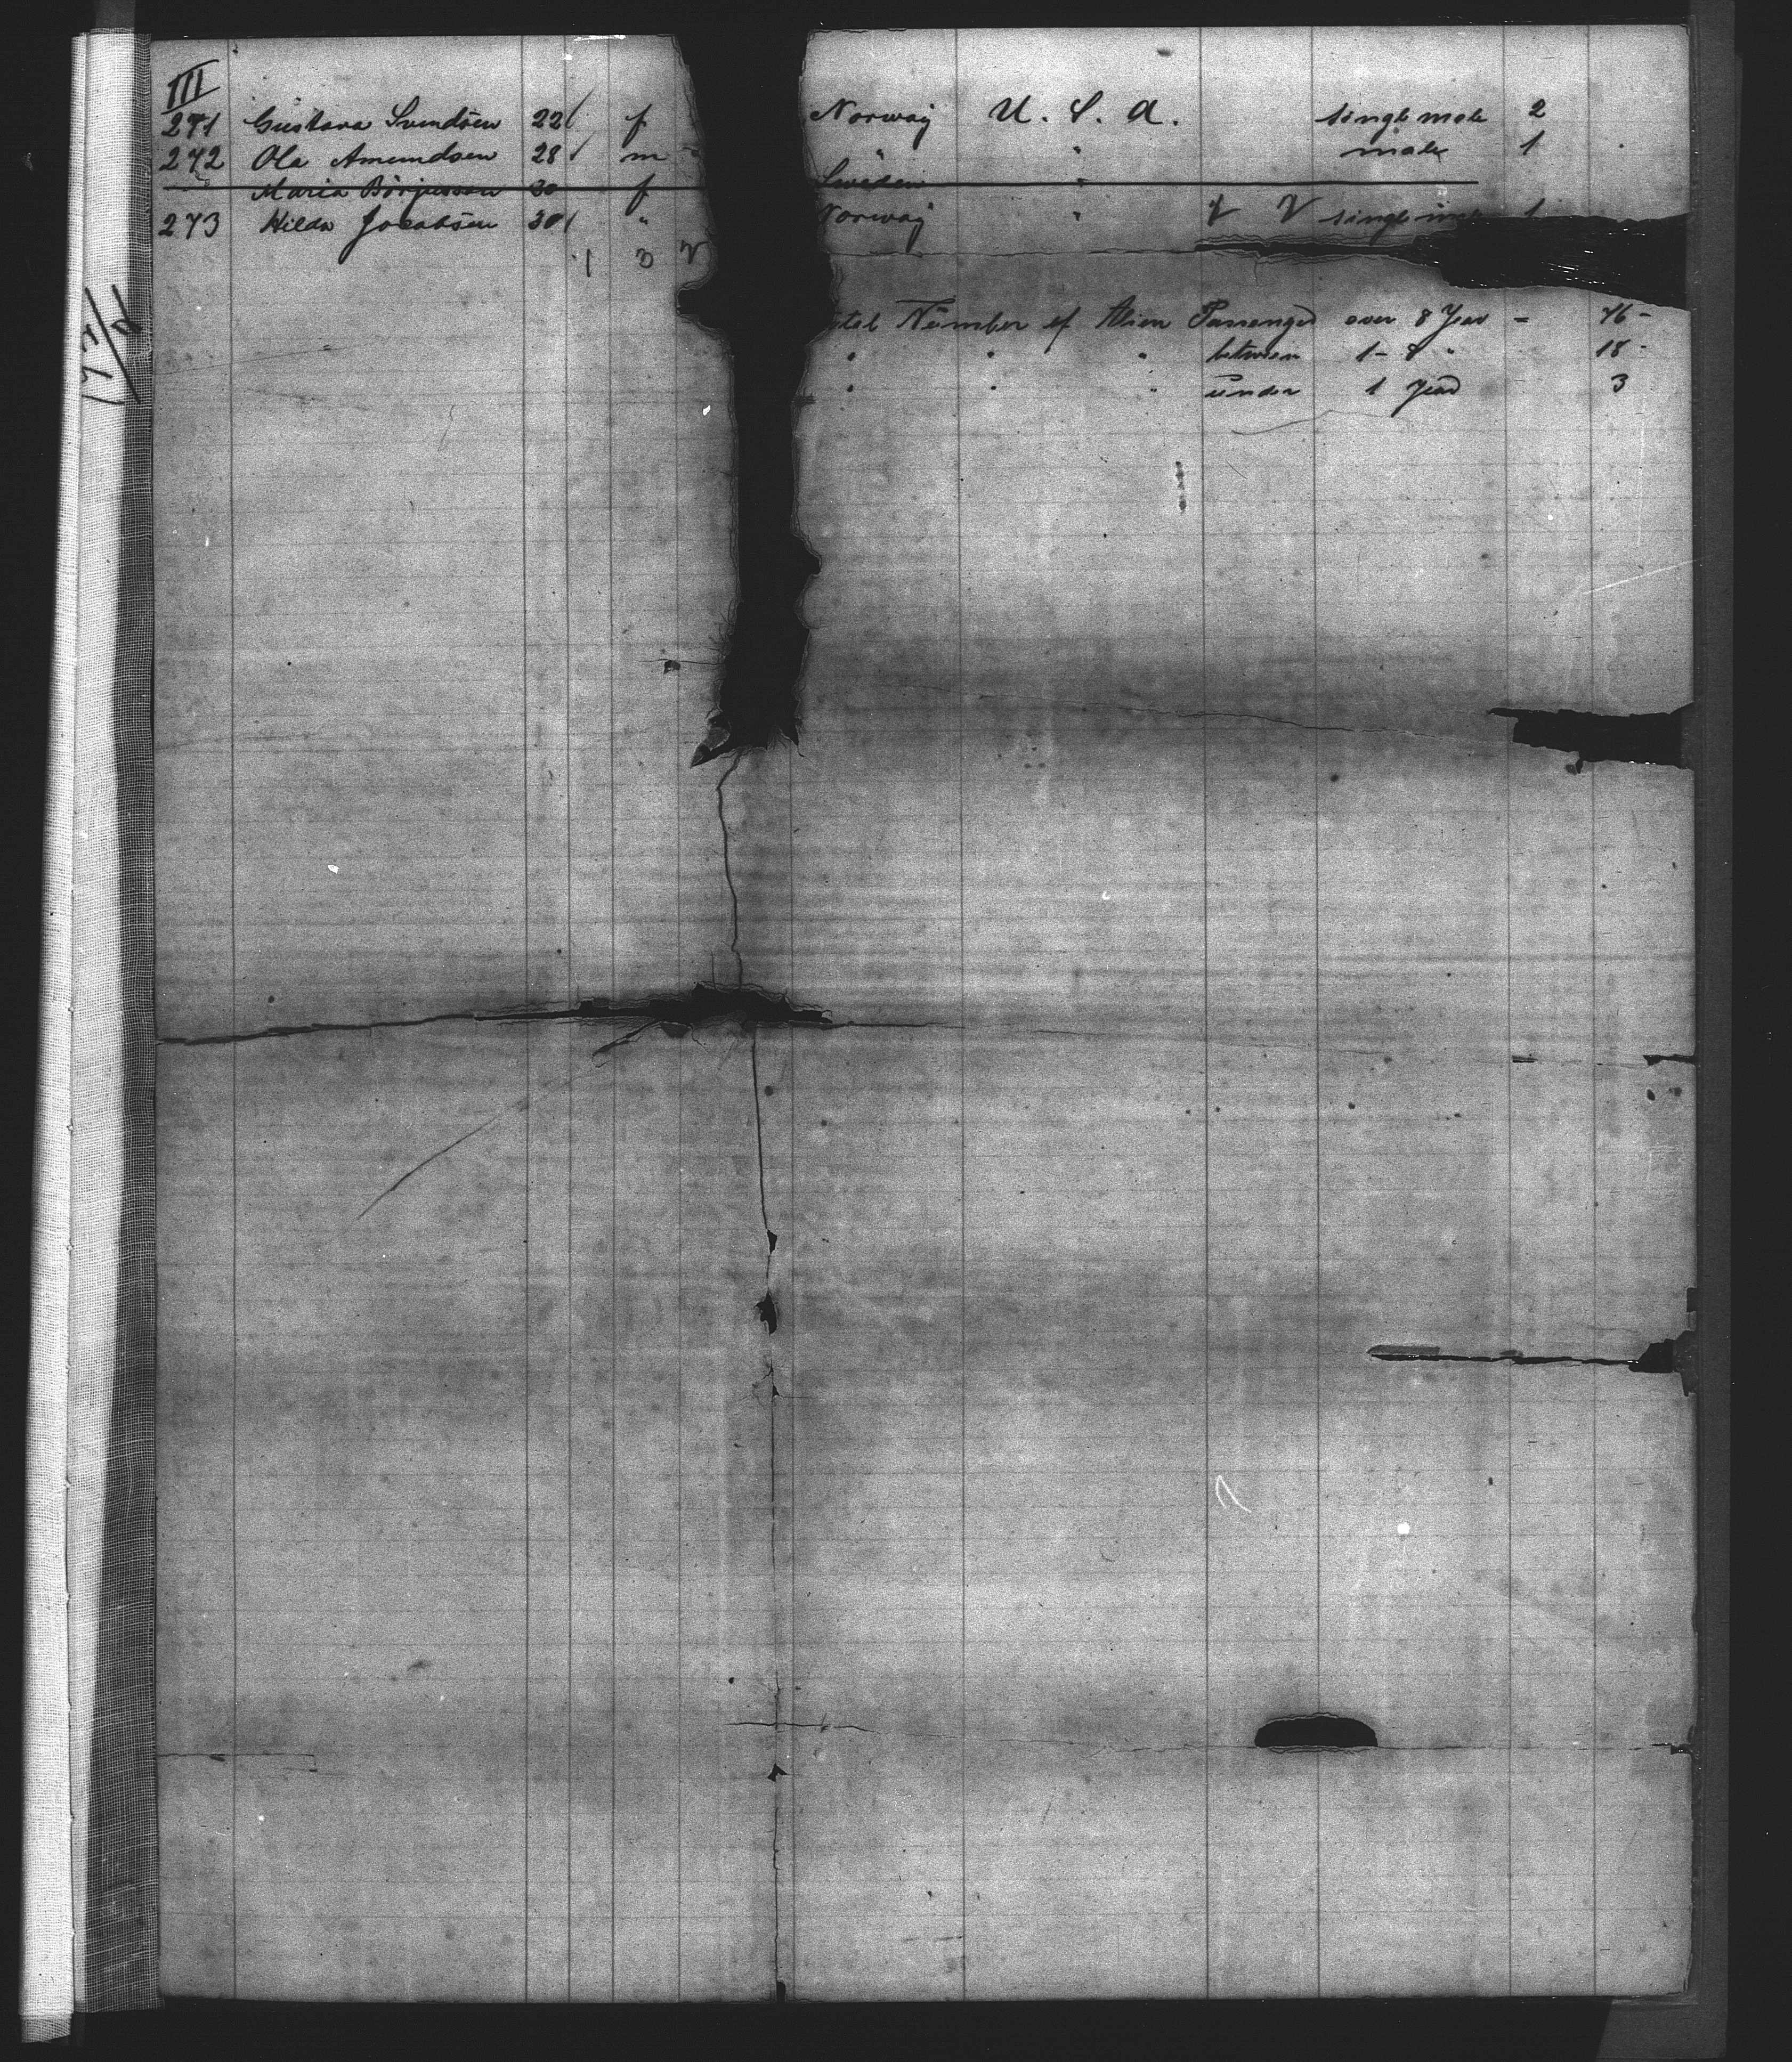 III
271 Gustava Svendsen 22 f Norway U. S. A. single male 2
272 Ola Amundsen 28 m " " male 1
Maria Börjesson 30 f Sweden "
273 Hilda Jocobsen 30 " Norway " single 1
1 3
Number of Alien Passenger over 8 Year = 76 -
" " " between 1 - 8 " 18 -
" " " under 1 Year 3